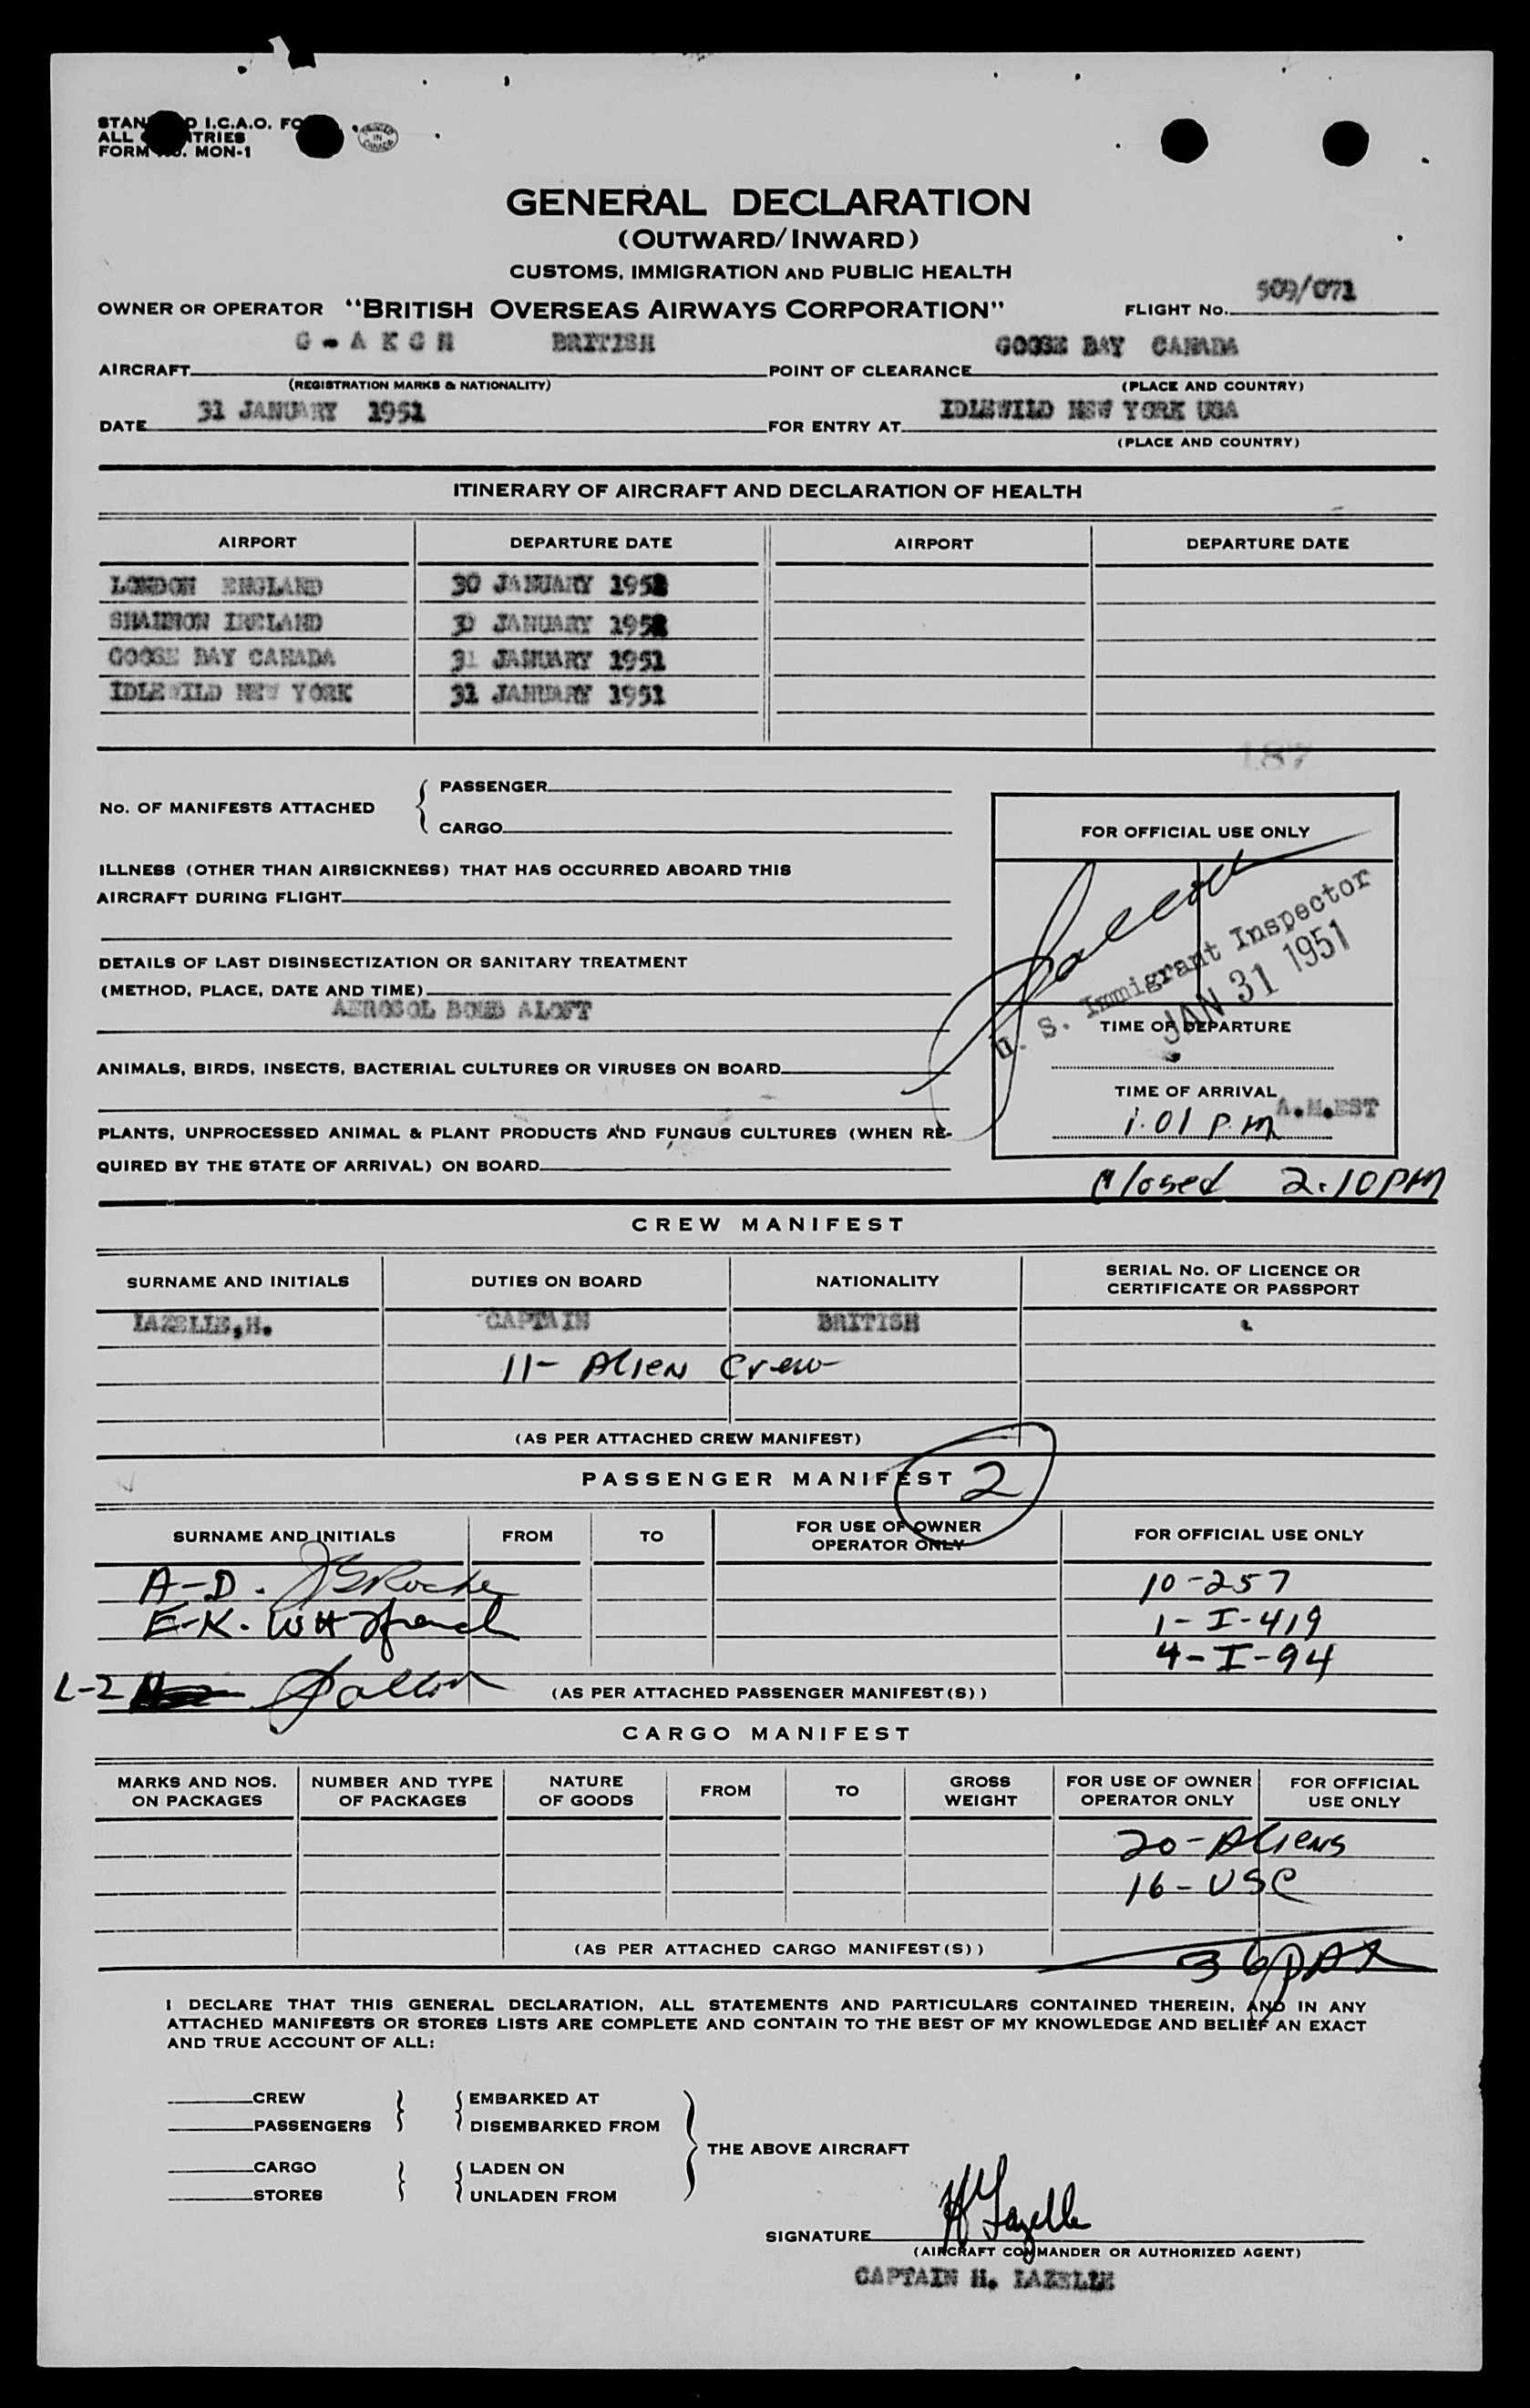 I.C.A.O.
ALL
FORM MON-1
PRINTED IN CANADA
GENERAL DECLARATION
(OUTWARD/INWARD)
CUSTOMS, IMMIGRATION AND PUBLIC HEALTH
OWNER OR OPERATOR "BRITISH OVERSEAS AIRWAYS CORPORATION" FLIGHT No. 509/071
AIRCRAFT G-AKGH BRITISH POINT OF CLEARANCE GOOSE BAY CANADA
(REGISTRATION MARKS & NATIONALITY) (PLACE AND COUNTRY)
DATE 31 JANUARY 1951 FOR ENTRY AT IDLEWILD NEW YORK USA
(PLACE AND COUNTRY)
ITINERARY OF AIRCRAFT AND DECLARATION OF HEALTH
AIRPORT DEPARTURE DATE AIRPORT DEPARTURE DATE
LONDON ENGLAND 30 JANUARY 1951
SHANNON IRELAND JANUARY 1951
GOOSE BAY CANADA 31 JANUARY 1951
IDLEWILD NEW YORK 31 JANUARY 1951
187
No. OF MANIFESTS ATTACHED
PASSENGER
CARGO
FOR OFFICIAL USE ONLY
ILLNESS (OTHER THAN AIRSICKNESS) THAT HAS OCCURRED ABOARD THIS
AIRCRAFT DURING FLIGHT
U. S. Immigrant Inspector
JAN 31 1951
DETAILS OF LAST DISINSECTIZATION OR SANITARY TREATMENT
(METHOD, PLACE, DATE AND TIME)
AEROSOL BOMB ALOFT
TIME OF DEPARTURE
ANIMALS, BIRDS, INSECTS, BACTERIAL CULTURES OR VIRUSES ON BOARD
TIME OF ARRIVAL
1.01 P.M. A.M.EST
PLANTS, UNPROCESSED ANIMAL & PLANT PRODUCTS AND FUNGUS CULTURES (WHEN RE-
QUIRED BY THE STATE OF ARRIVAL) ON BOARD
Closed 2.10 PM
CREW MANIFEST
SURNAME AND INITIALS DUTIES ON BOARD NATIONALITY SERIAL No. OF LICENCE OR
CERTIFICATE OR PASSPORT
LAZELLE,H. CAPTAIN BRITISH
11- Alien Crew
(AS PER ATTACHED CREW MANIFEST)
PASSENGER MANIFEST 2
SURNAME AND INITIALS FROM TO FOR USE OF OWNER
OPERATOR ONLY FOR OFFICIAL USE ONLY
A-D. 10-257
E-K. 1-I-419
4-I-94
L-Z
(AS PER ATTACHED PASSENGER MANIFEST(S))
CARGO MANIFEST
MARKS AND NOS.
ON PACKAGES NUMBER AND TYPE
OF PACKAGES NATURE
OF GOODS FROM TO GROSS
WEIGHT FOR USE OF OWNER
OPERATOR ONLY FOR OFFICIAL
USE ONLY
20-Aliens
16-USC
36 PAX
(AS PER ATTACHED CARGO MANIFEST(S))
I DECLARE THAT THIS GENERAL DECLARATION, ALL STATEMENTS AND PARTICULARS CONTAINED THEREIN, AND IN ANY
ATTACHED MANIFESTS OR STORES LISTS ARE COMPLETE AND CONTAIN TO THE BEST OF MY KNOWLEDGE AND BELIEF AN EXACT
AND TRUE ACCOUNT OF ALL:
CREW EMBARKED AT
PASSENGERS DISEMBARKED FROM
THE ABOVE AIRCRAFT
CARGO LADEN ON
STORES UNLADEN FROM
SIGNATURE H Lazelle
(AIRCRAFT COMMANDER OR AUTHORIZED AGENT)
CAPTAIN H. LAZELLE